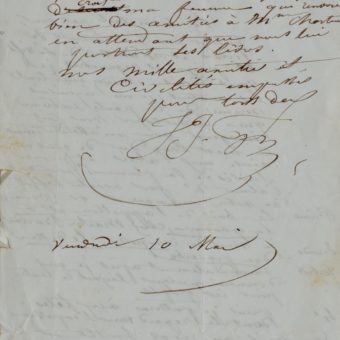 ma femme qui envoie
bien des amitiés à Mme
en attendant que nous lui
portions ses livres.
mille amitiés et
Civilités empressées
pour tous deux
Vendredi 10 Mai